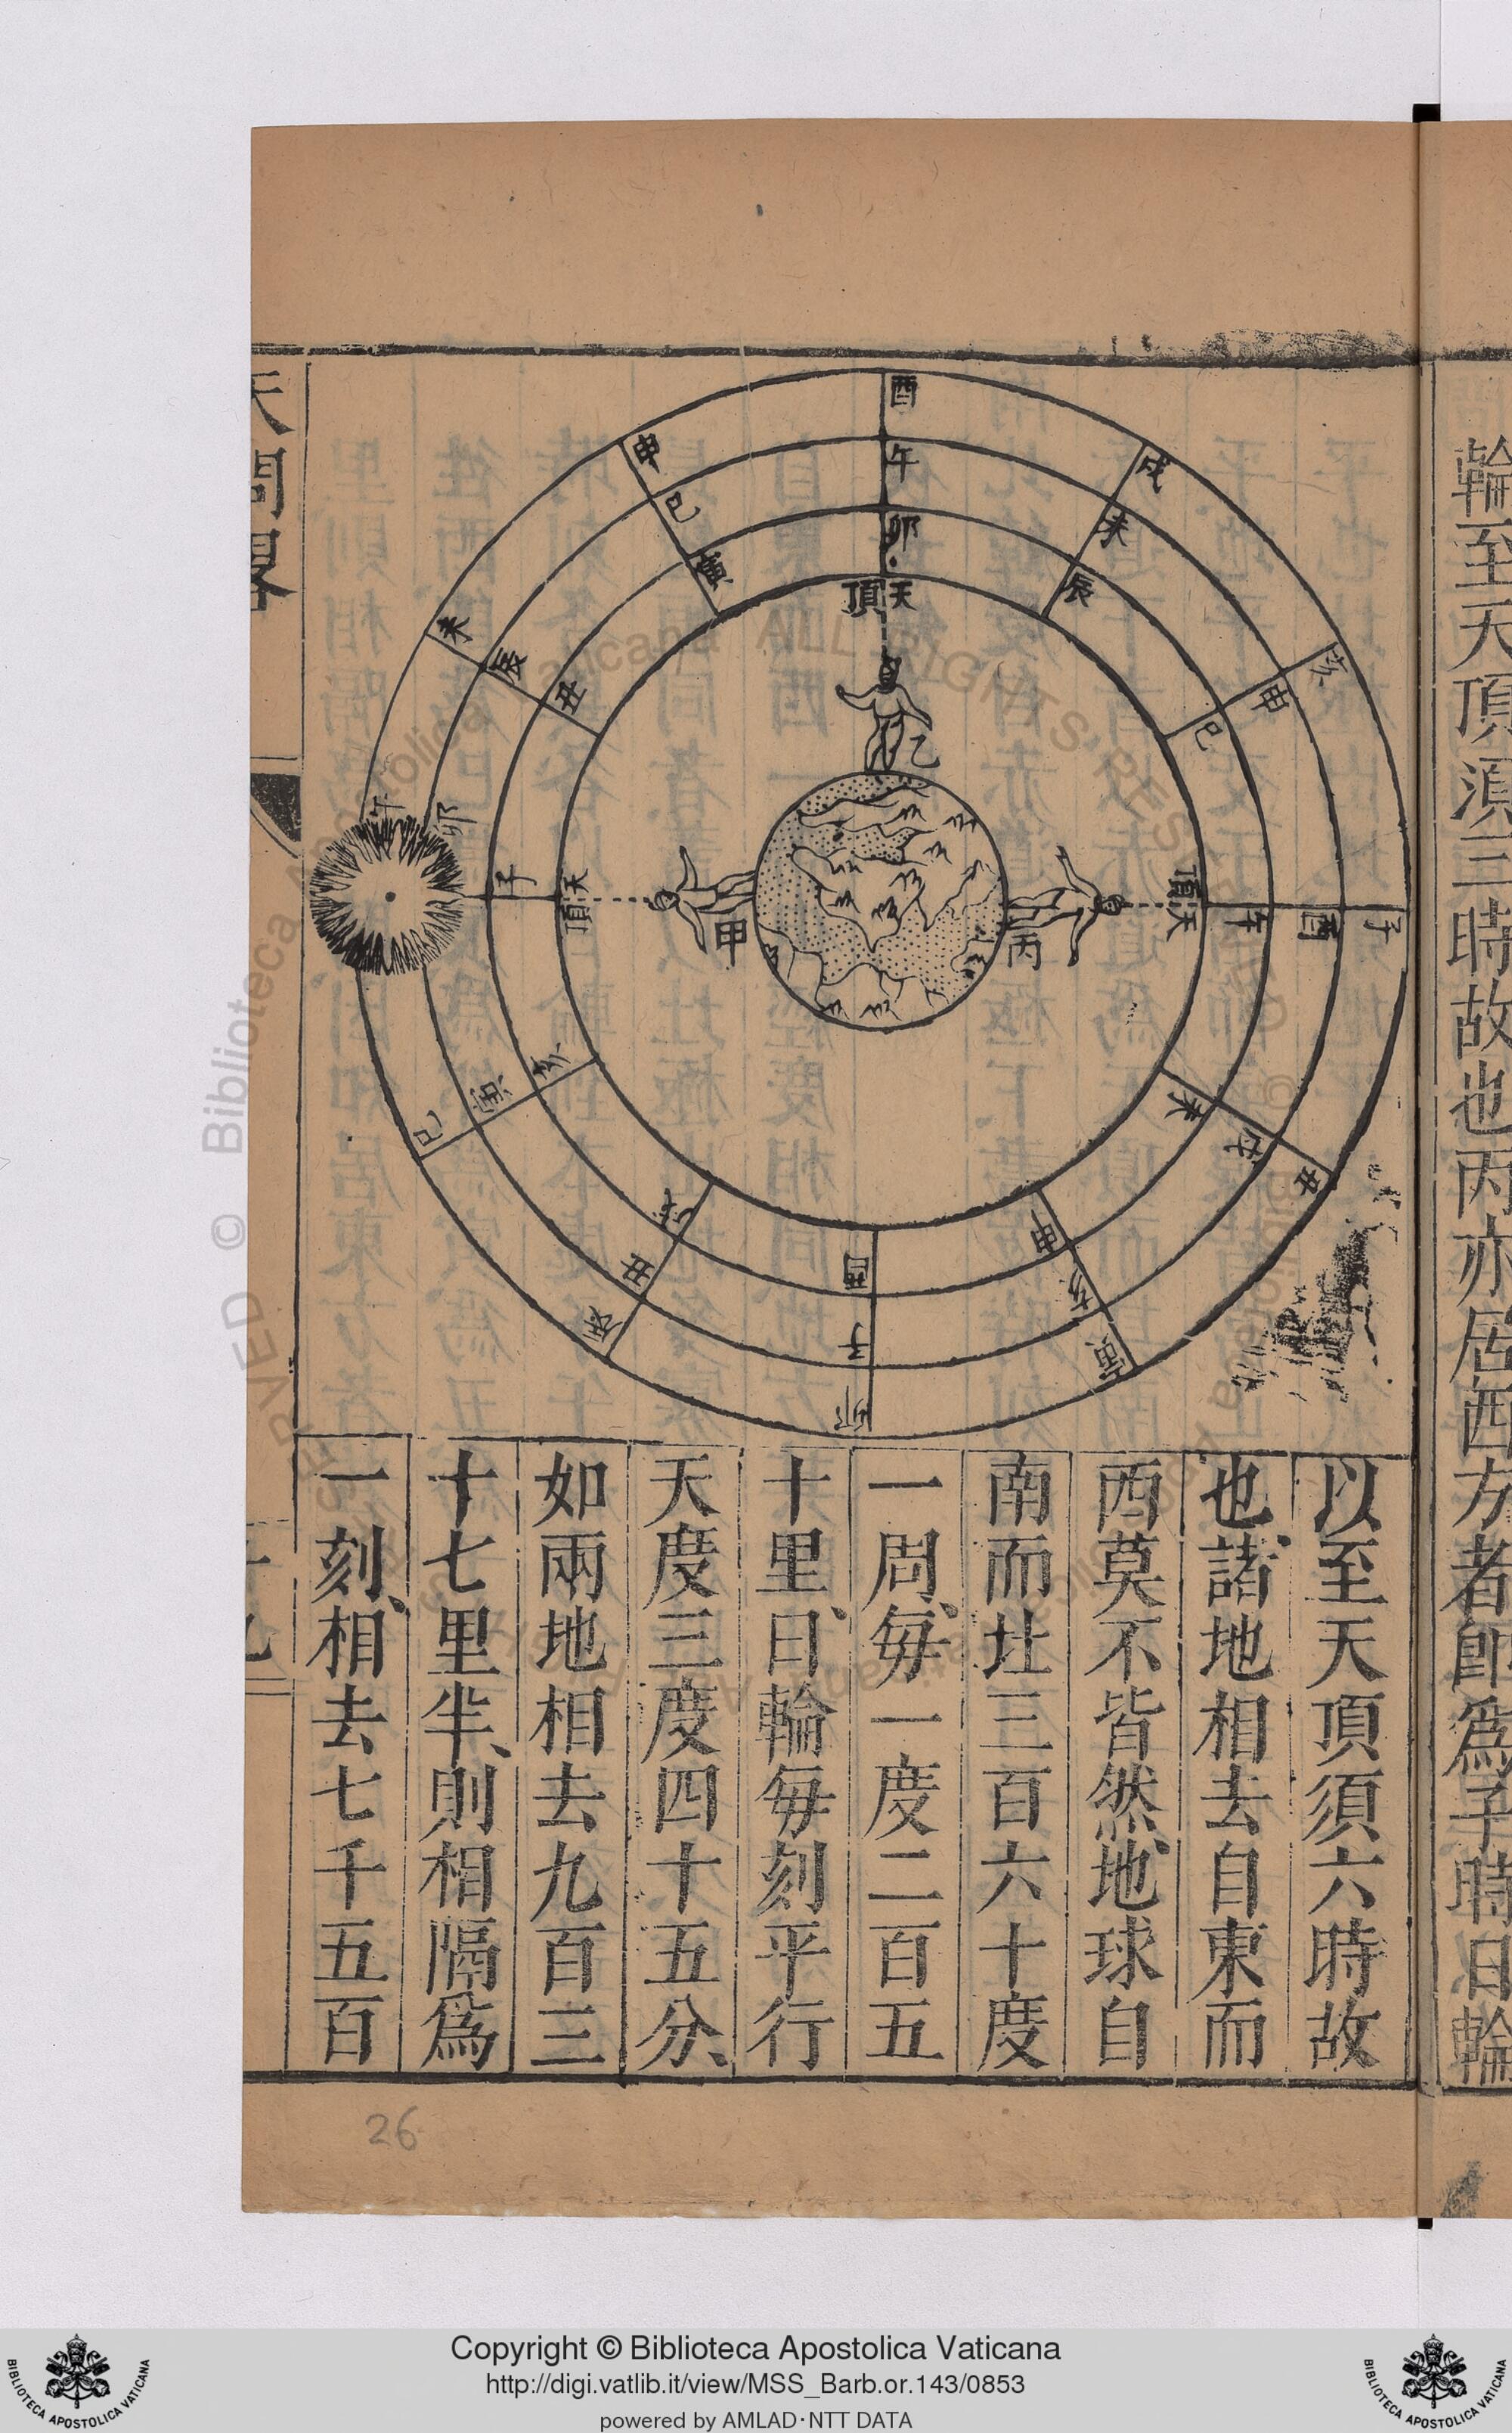 輪至天頂須三時故也丙亦居西方者卽爲子時日輪
酉
午
卯
天頂
戌
未
辰
亥
申
巳
子
酉
午
天頂
丑
戌
未
寅
亥
申
卯
子
酉
辰
丑
戌
巳
寅
亥
午
卯
子
天頂
未
辰
丑
申
巳
寅
乙
甲
丙
以至天頂須六時故
也諸地相去自東而
西莫不皆然地球自
南而北三百六十度
一周、每一度二百五
十里、日輪每刻平行
天度三度四十五分、
如兩地相去九百三
十七里半、則相隔爲
一刻、相去七千五百
天問畧
26
© Biblioteca Apostolica Vaticana ALL RIGHTS RESERVED
Copyright © Biblioteca Apostolica Vaticana
http://digi.vatlib.it/view/MSS_Barb.or.143/0853
powered by AMLAD·NTT DATA
BIBLIOTECA APOSTOLICA VATICANA
BIBLIOTECA APOSTOLICA VATICANA